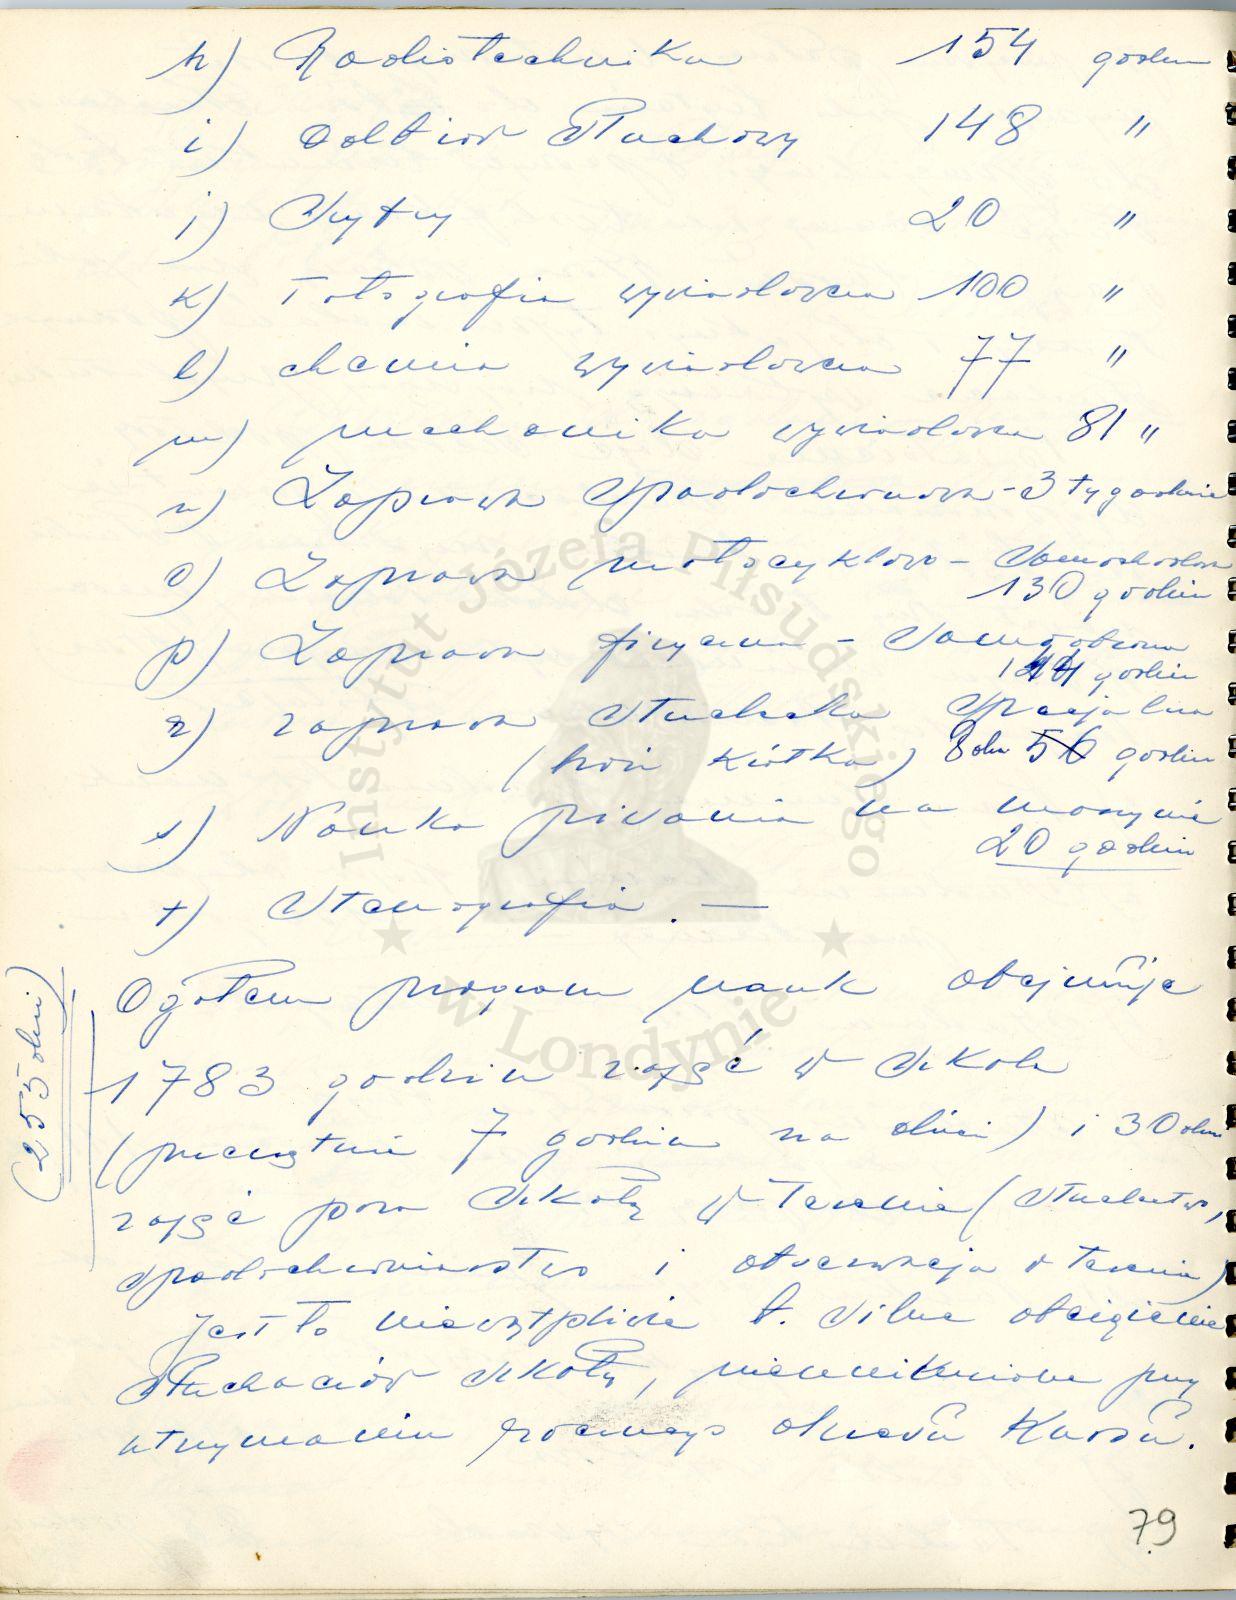 h) Radiotechnika 154 godzin
i) Odbiór słuchowy 148 "
j) Szyfry 20 "
k) Fotografia wywiadowcza 100 "
l) chemia wywiadowcza 77 "
m) mechanika wywiadowcza 81 "
n) Zaprawa spadochronowa - 3 tygodnie
o) Zaprawa motocyklowa - samochodowa
130 godzin
p) Zaprawa fizyczna -
144 godzin
r) zaprawa strzelecka specjalna
(broń krótka) 8 dni 56 godzin
s) Nauka pisania na maszynie
20 godzin
t) Stenografia. —
Ogółem program nauk obejmuje
(255 dni)
1783 godzin zajęć w szkole
(przeciętnie 7 godzin na dzień) i 30 dni
zajęć poza szkołą w terenie (
spadochroniarstwo i obserwacja w terenie)
Jest to niewątpliwie b. silne obciążenie
słuchaczów szkoły, nieuniknione przy
utrzymaniu rocznego okresu kursu.
79
Instytut Józefa Piłsudskiego
w Londynie